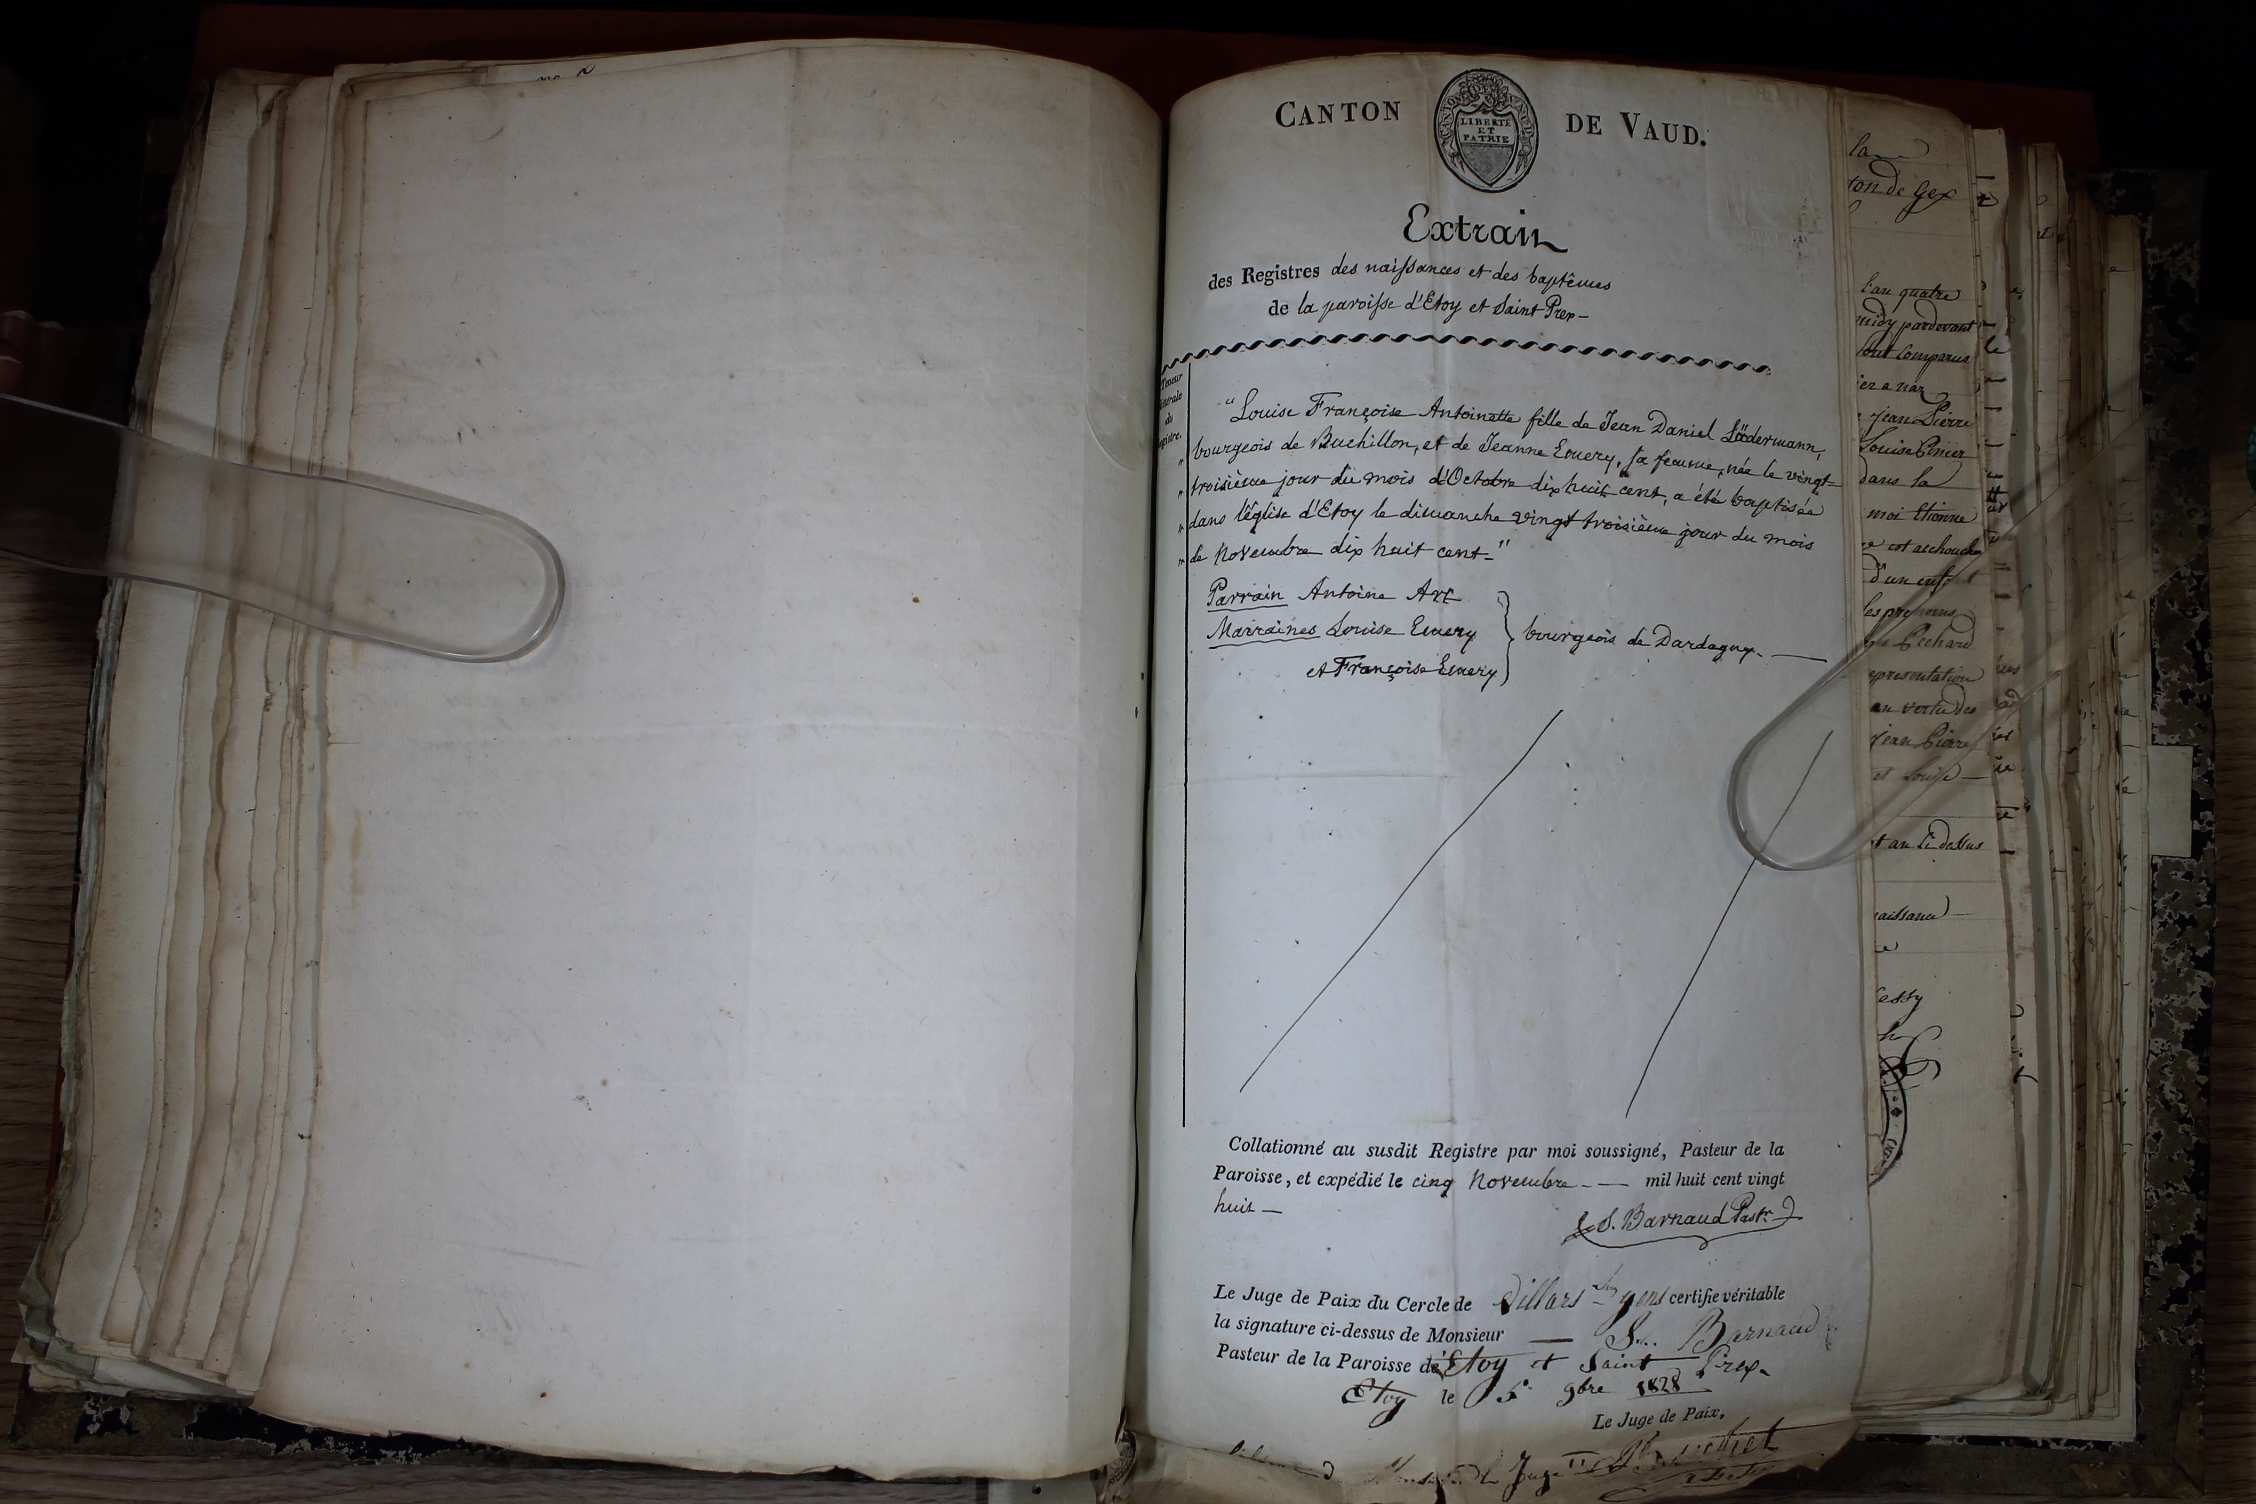 CANTON DE VAUD.
LIBERTÉ
ET
PATRIE
Extrait
des Registres des naissances et des baptêmes
de la paroisse d'Etoy et Saint Prex -
"Louise Françoise Antoinette fille de Jean Daniel Lädermann,
" bourgeois de Buchillon, et de Jeanne Emery, sa femme, née le vingt-
" troisième jour du mois d'Octobre dix huit cent, a été baptisée
" dans l'église d'Etoy le dimanche vingt troisième jour du mois
" de Novembre dix huit cent_"
Parrain Antoine Art
Marraines Louise Emery
et Françoise Emery
bourgeois de Dardagny. —
Collationné au susdit Registre par moi soussigné, Pasteur de la
Paroisse, et expédié le cinq Novembre - — mil huit cent vingt
huit —
S. Barnaud Past.r
Le Juge de Paix du Cercle de Villars s/ yens certifie véritable
la signature ci-dessus de Monsieur — S. Barnaud
Pasteur de la Paroisse de Etoy et Saint Prex-
Etoy le 5e 9bre 1828
Le Juge de Paix,
ton de Gex
l'an quatre
midy pardevant
comparus
jean Pierre
Louise
dans la
moi Etienne
est acchouché
d'un enf
les prenoms
Pechard
presentation
en vertu des
jean Pierre
et Louise —
an ci dessus
naissance —
cessy